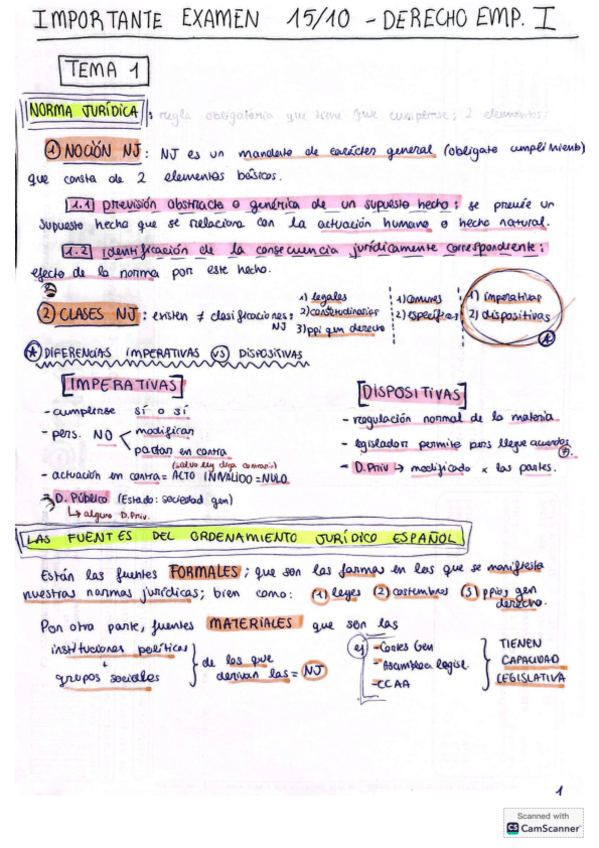 IMPORTANTE EXAMEN 15/10 - DERECHO EMP. I
TEMA 1
NORMA JURÍDICA: regla obligatoria que tiene que cumplirse; 2 elementos:
① NOCIÓN NJ: NJ es un mandato de carácter general (obligato cumplimiento)
que consta de 2 elementos básicos.
1.1 previsión abstracta o genérica de un supuesto hecho: se prevée un
supuesto hecho que se relaciona con la actuación humana o hecho natural.
1.2 identificación de la consecuencia jurídicamente correspondiente:
efecto de la norma por este hecho.
② CLASES NJ: existen ≠ clasificaciones: NJ
1) legales
2) consetudinarias
3) ppi gen derecho
1) comunes
2) específicas
1) imperativas
2) dispositivas
★
★ DIFERENCIAS IMPERATIVAS VS DISPOSITIVAS
[IMPERATIVAS]
- cumplirse sí o sí
- pers. NO < modificar
pactar en contra
(salvo ley diga contrario)
- actuación en contra = ACTO INVÁLIDO = NULO
D. Público (Estado: sociedad gen)
↳ alguno D.Priv.
[DISPOSITIVAS]
- regulación normal de la materia.
- legislador permite pers llegue acuerdos
- D.Priv → modificado x las partes.
LAS FUENTES DEL ORDENAMIENTO JURÍDICO ESPAÑOL
Están las fuentes FORMALES; que son las formas en las que se manifiesta
nuestras normas jurídicas; bien como: (1) leyes (2) costumbres (3) ppios gen
derecho.
Por otra parte, fuentes MATERIALES que son las
instituciones políticas
+
grupos sociales
} de los que
derivan las = NJ
ej
- Cortes Gen
- Asamblea legisl.
- CCAA
} TIENEN
CAPACIDAD
LEGISLATIVA
1
Scanned with
CS CamScanner